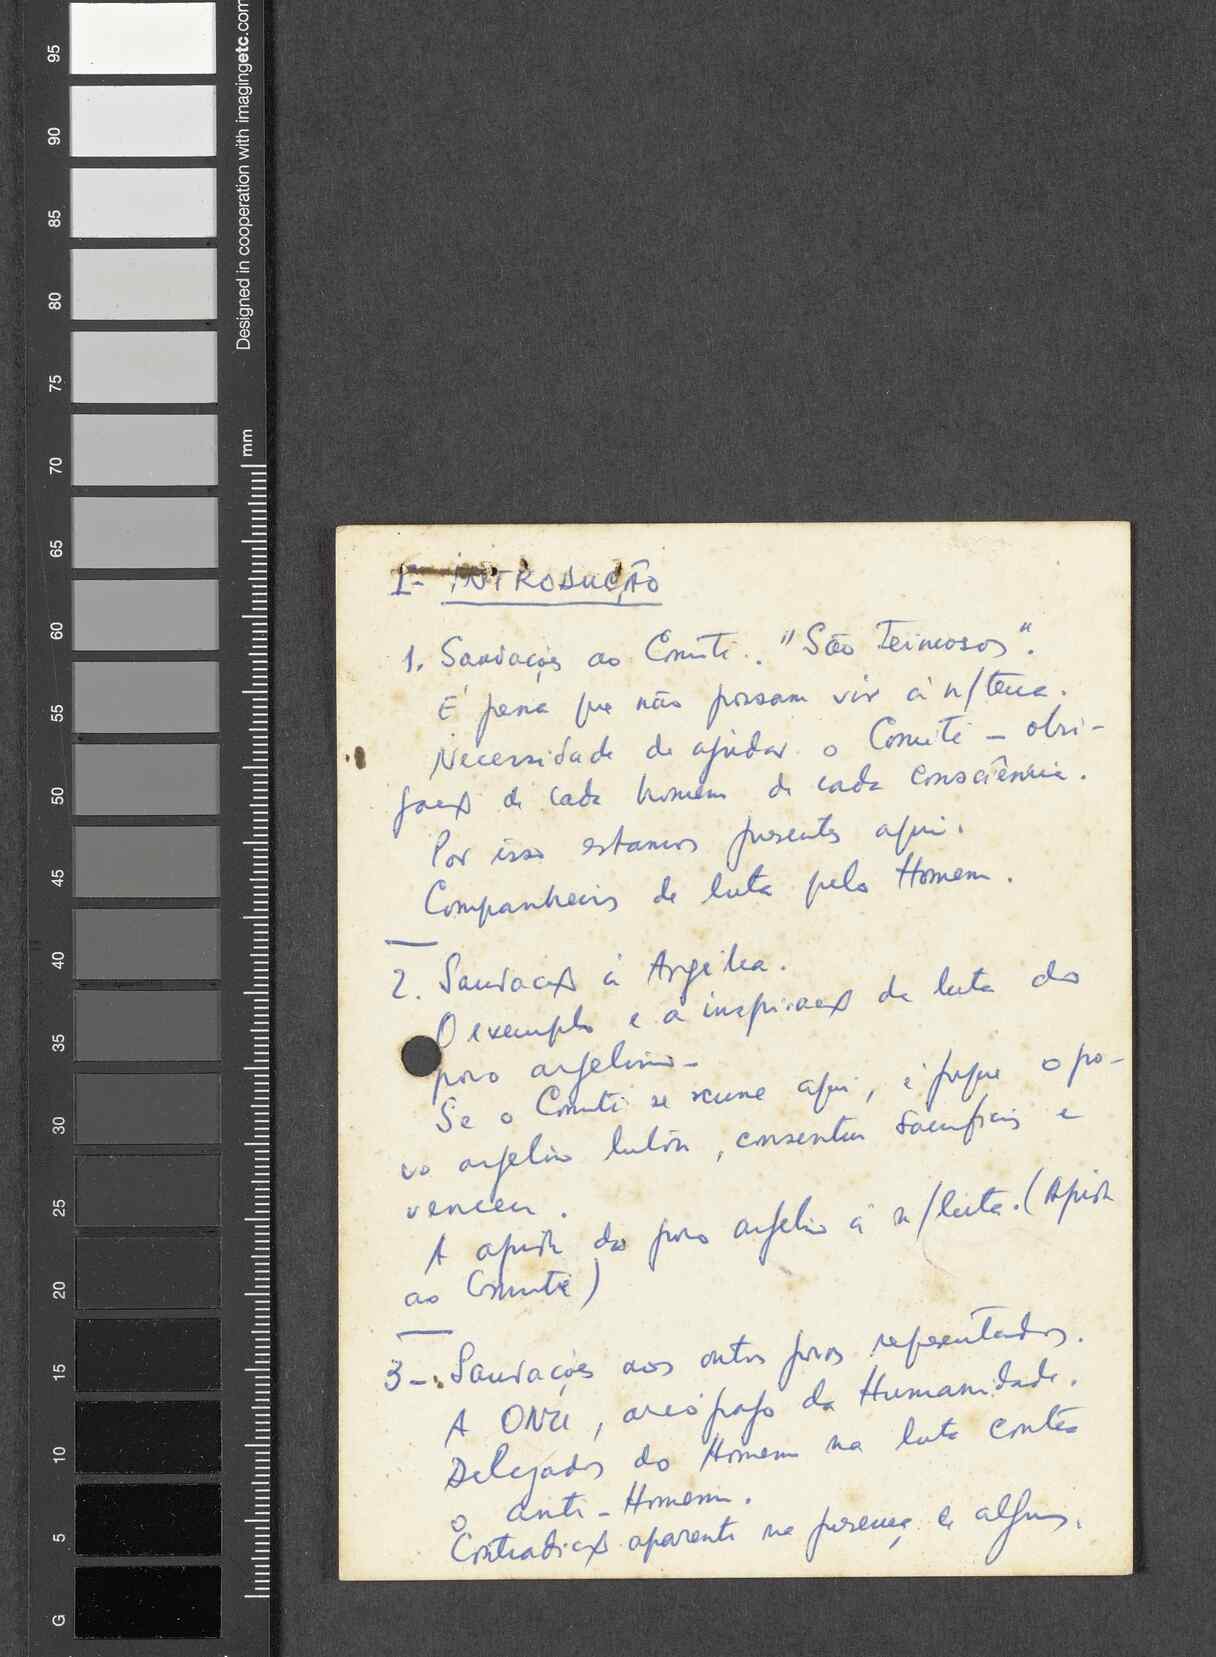 95
90
85
80
75
70
65
60
55
50
45
40
35
30
25
20
15
10
5
G
Designed in cooperation with imagingetc.com
mm
I- INTRODUÇÃO
1. Saudações ao Comité. "São Teimosos".
É pena que não possam vir à n/terra.
Necessidade de ajudar o Comité - obri-
gação de cada homem de cada consciência.
Por isso estamos presentes aqui.
Companheiros de luta pelo Homem.
2. Saudação à Argélia.
O exemplo e a inspiração da luta do
povo argelino-
Se o Comité se reune aqui, é porque o po-
vo argelino lutou, consentiu sacrifícios e
venceu.
A ajuda do povo argelino à n/luta. (Ajuda
ao Comité)
3- Saudações aos outros povos representados.
A ONU, areópago da Humanidade.
Delegados do Homem na luta contra
o anti-Homem.
Contradição aparente na presença de alguns.